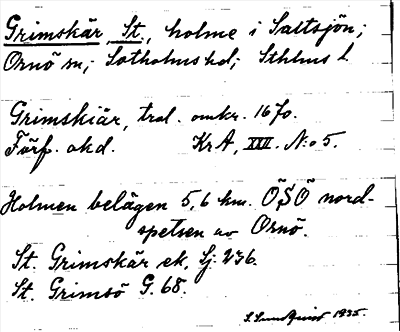 Grimskär, St., holme i Saltsjön;
Ornö sn; Sotholms hd; Sthlms l.
Grimskiär, trol. omkr. 1670.
Förf. okd. KrA, XXII. N:o 5.
Holmen belägen 5,6 km. ÖSÖ nord-
spetsen av Ornö.
St. Grimskär ek, Sj. 236.
St. Grimsö G. 68.
S. Lundqvist 1935.